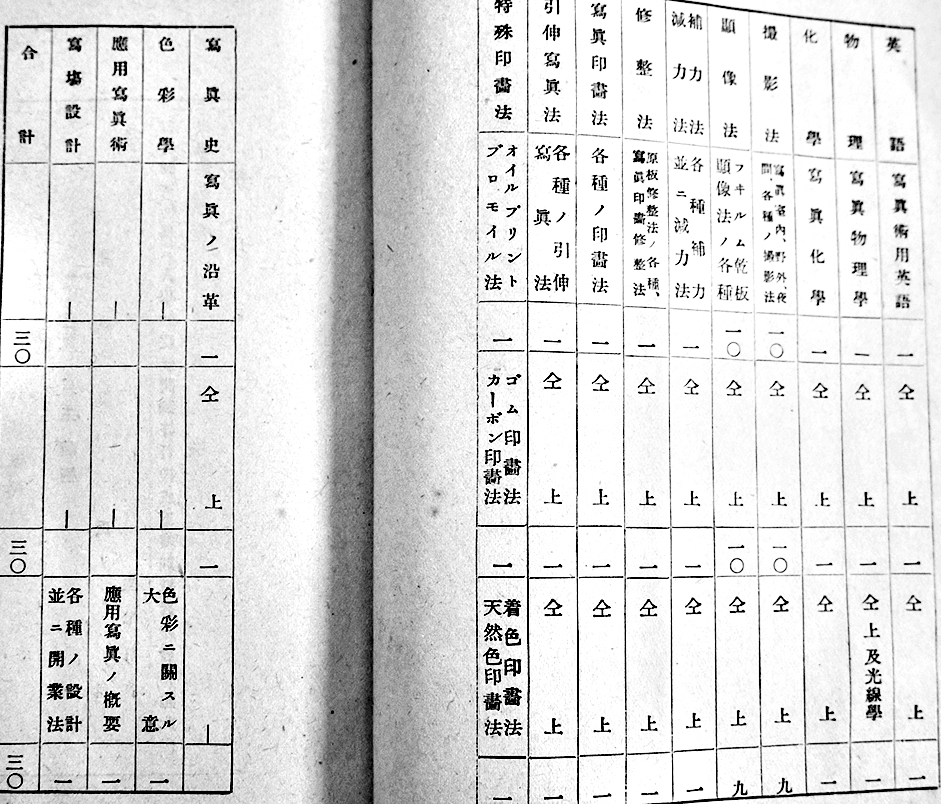 英語 寫眞術用英語 一 仝上 一 仝上 一
物理 寫眞物理學 一 仝上 一 仝上及光線學 一
化學 寫眞化學 一 仝上 一 仝上 一
撮影法 寫眞室內、野外、夜間、各種ノ撮影法 一〇 仝上 一〇 仝上 九
顯像法 フヰルム乾板顯像法ノ各種 一〇 仝上 一〇 仝上 九
補力法減力法 各種補力並ニ減力法 一 仝上 一 仝上 一
修整法 原板修整法ノ各種、寫眞印畫修整法 一 仝上 一 仝上 一
寫眞印畫法 各種ノ印畫法 一 仝上 一 仝上 一
引伸寫眞法 各種ノ引伸寫眞法 一 仝上 一 仝上 一
特殊印畫法 オイルプリントブロモイル法 一 ゴム印畫法カーボン印畫法 一 着色印畫法天然色印畫法 一
寫眞史 寫眞ノ沿革 一 仝上 一 ―
色彩學 ― ― 色彩ニ關スル大意 一
應用寫眞術 ― ― 應用寫眞ノ概要 一
寫場設計 ― ― 各種ノ設計並ニ開業法 一
合計 三〇 三〇 三〇